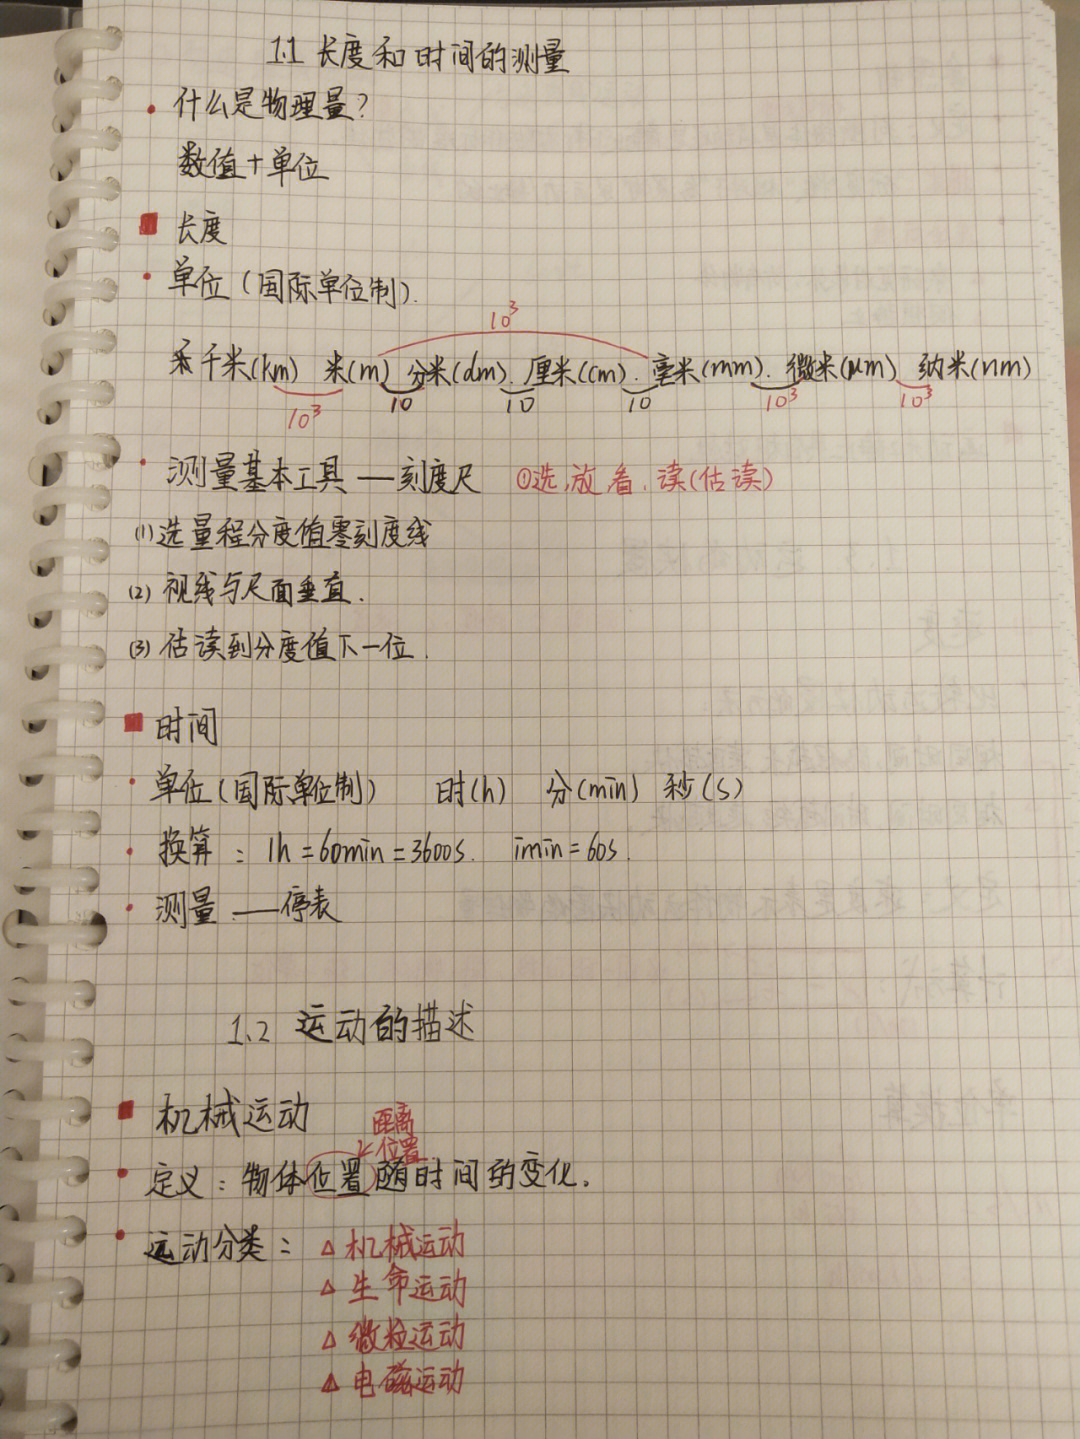 1.1 长度和时间的测量
• 什么是物理量?
数值+单位
长度
• 单位(国际单位制).
10³
千米(km) 米(m) 分米(dm). 厘米(cm). 毫米(mm). 微米(μm) 纳米(nm)
10³ 10 10 10 10³ 10³
• 测量基本工具——刻度尺 ①选,放,看,读(估读)
(1) 选量程分度值零刻度线
(2) 视线与尺面垂直.
(3) 估读到分度值下一位.
时间
• 单位(国际单位制) 时(h) 分(min) 秒(s)
• 换算: 1h=60min=3600s. 1min=60s.
• 测量——停表
1.2 运动的描述
机械运动
距离
位置
• 定义: 物体位置随时间的变化.
• 运动分类: △ 机械运动
△ 生命运动
△ 微粒运动
△ 电磁运动